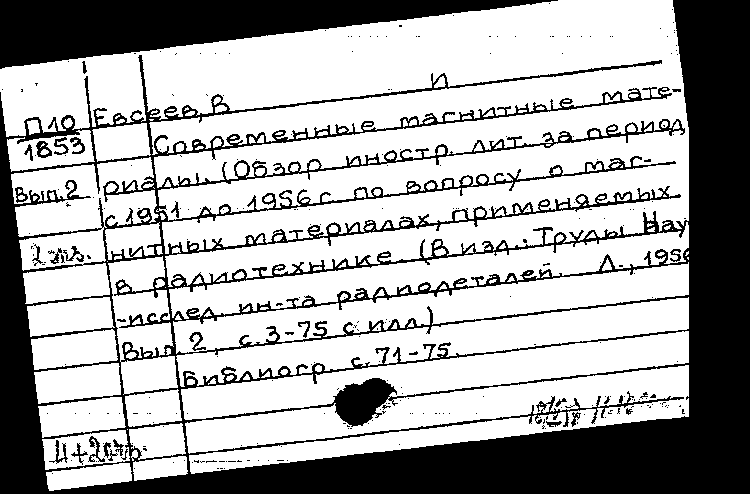 И
П10 Евсеев, В
1853 Современные магнитные мате-
Вып.2 риалы. (Обзор иностр. лит. за период
с 1951 до 1956 г. по вопросу о маг-
2 экз. нитных материалах, применяемых
в радиотехнике. (В изд.: Труды Науч
-исслед. ин-та радиодеталей. Л., 1956
Вып. 2, с. 3-75 с илл.)
Библиогр. с. 71-75.